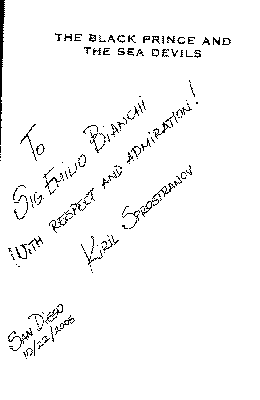 THE BLACK PRINCE AND
THE SEA DEVILS
TO
SIG. EMILIO BIANCHI
WITH RESPECT AND ADMIRATION!
KIRIL SPROSTRANOV
SAN DIEGO
10/22/2005